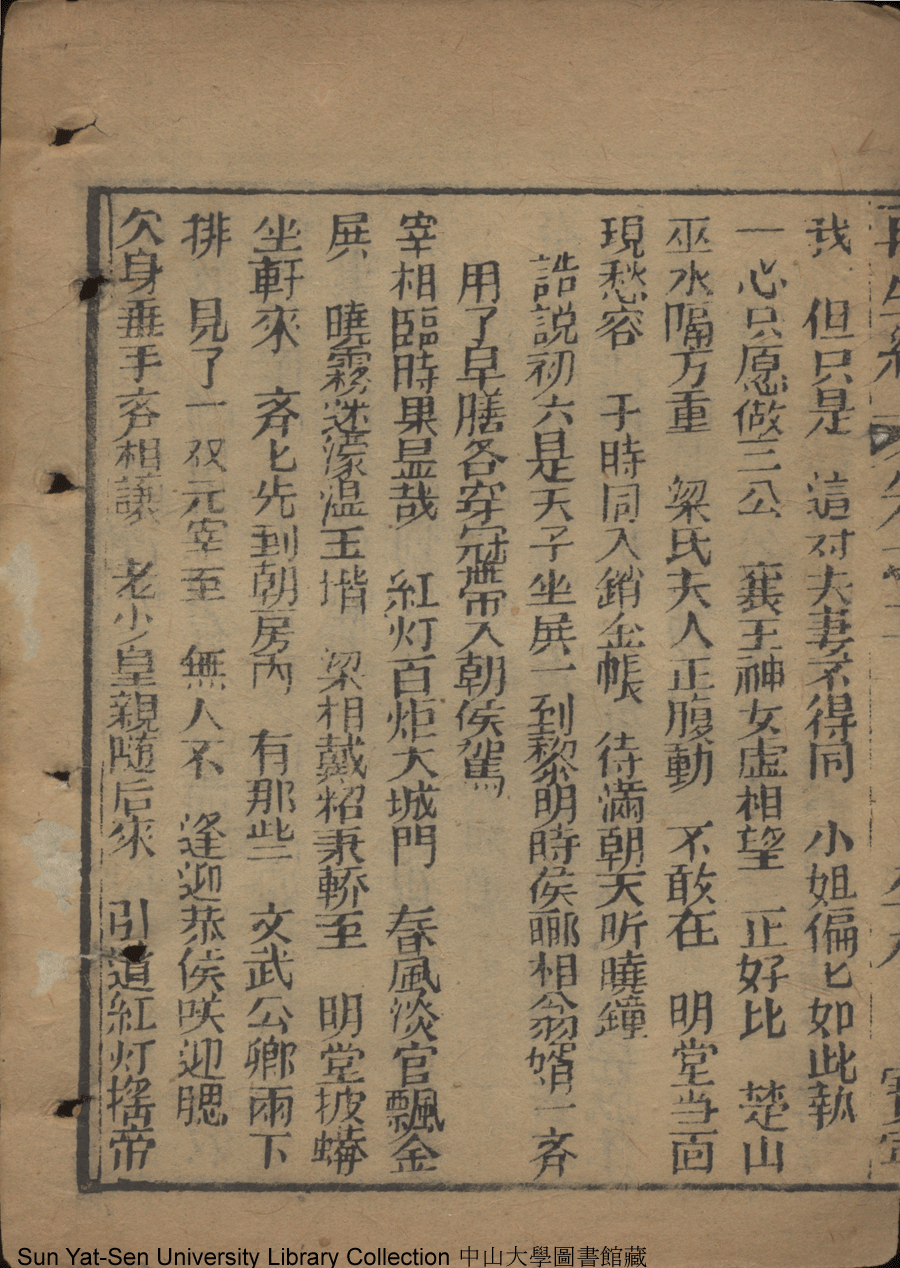 再生
我　但只是　這对夫妻不得同　小姐偏匕如此執
一心只愿做三公　襄王神女虛相望　正好比　楚山
巫水隔方重　梁氏夫人正腹動　不敢在　明堂当面
現愁容　于時同入銷金帳　待滿朝天听曉鐘
話說初六是天子坐展一到黎明時侯酈相翁婿一斉
用了早膳各穿冠帶入朝侯駕
宰相臨時果显哉　紅灯百炬大城門　春風淡官飄金
展　曉霧迷濛温玉堦　梁相戴紹秉轎至　明堂披蟒
坐軒來　斉匕先到朝房內　有那些　文武公卿兩下
排　見了一双元宰至　無人不　逢迎恭侯咲迎腮
欠身垂手斉相謙　老少皇親随后來　引道紅灯搖帝
Sun Yat-Sen University Library Collection 中山大學圖書館藏